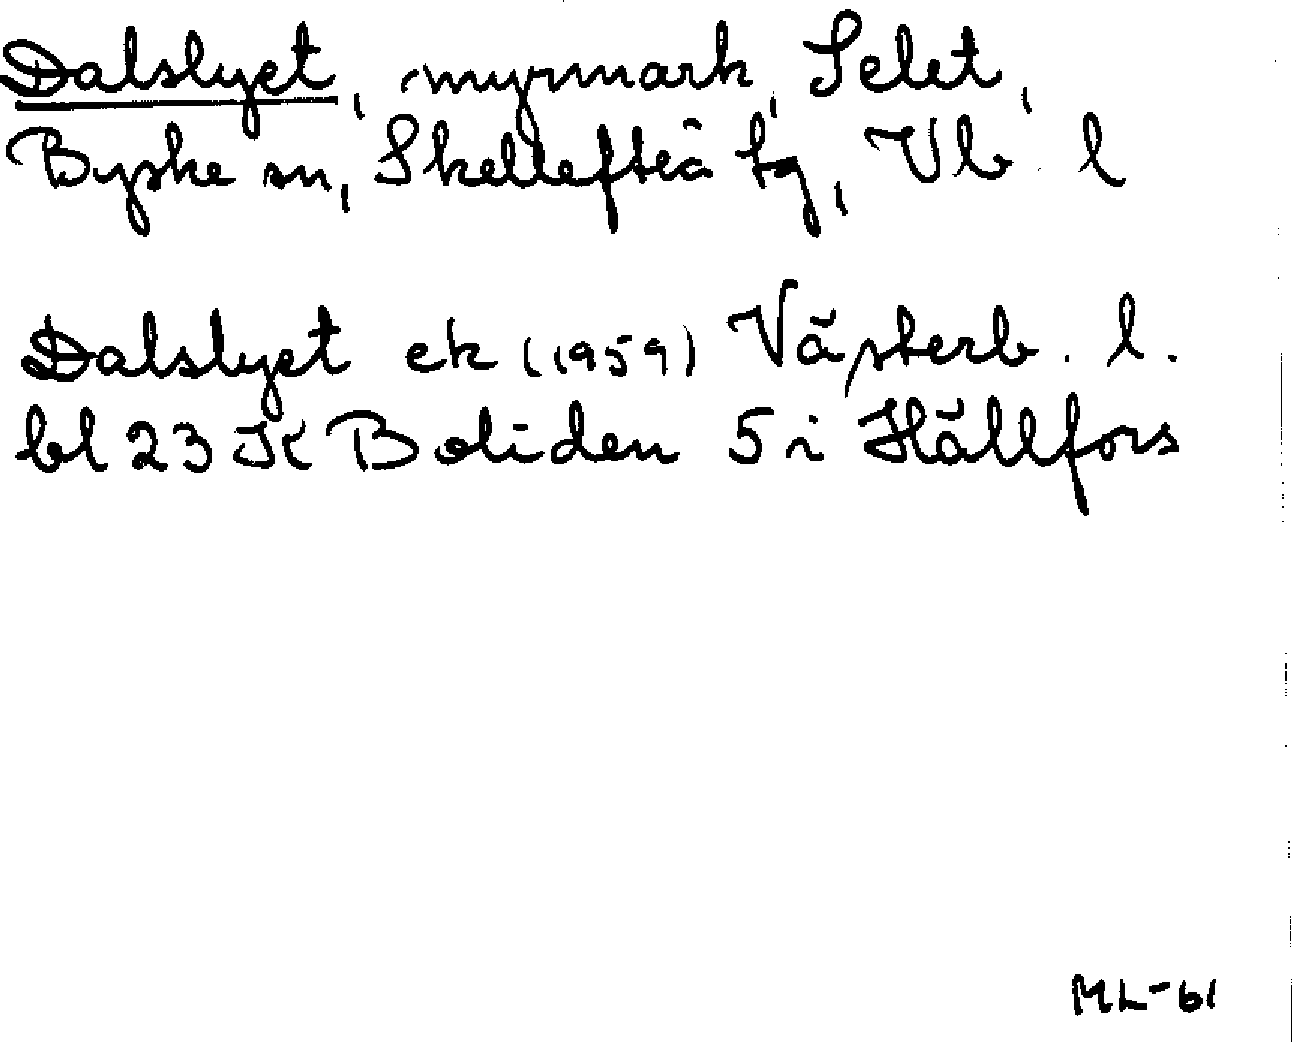 Dalslyet, myrmark, Selet,
Byske sn, Skellefteå tg, Vb l
Dalslyet ek (1959) Västerb. l.
bl 23 K Boliden 5 i Hällfors
ML-61